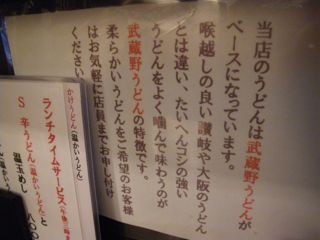 当店のうどんは武蔵野うどんが
ベースになっています。
喉越しの良い讃岐や大阪のうどん
とは違い、たいへんコシの強い
うどんをよく噛んで味わうのが
武蔵野うどんの特徴です。
柔らかいうどんをご希望のお客様
はお気軽に店員までお申し付け
ください
かけうどん（温かいうどん）と
ランチタイムサービス
S 辛うどん（温かいうどん）
温玉めし